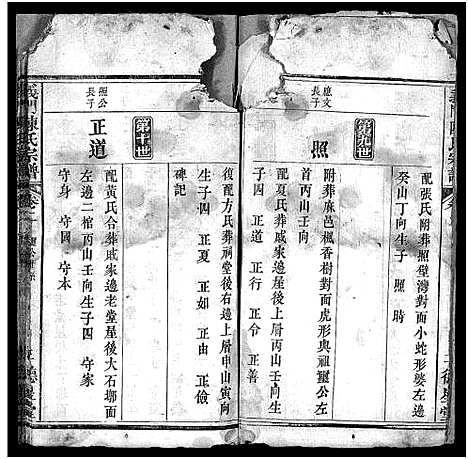 配張氏附葬照壁灣對面小蛇形婆左邊
癸山丁向生子 照 時
第九世
應文長子
照
附葬麻邑楓香樹對面虎形與祖璽公左
首丙山壬向
配夏氏葬戚家邊屋後上層丙山壬向生
子四 正道 正行 正令 正善
復配方氏葬祠堂後右邊上層申山寅向
生子四 正夏 正如 正由 正儉
碑記
第十世
照公長子
正道
配黃氏合葬戚家邊老堂屋後大石塝面
左邊二棺丙山壬向生子四 守家
守身 守國 守本
義門陳氏宗譜